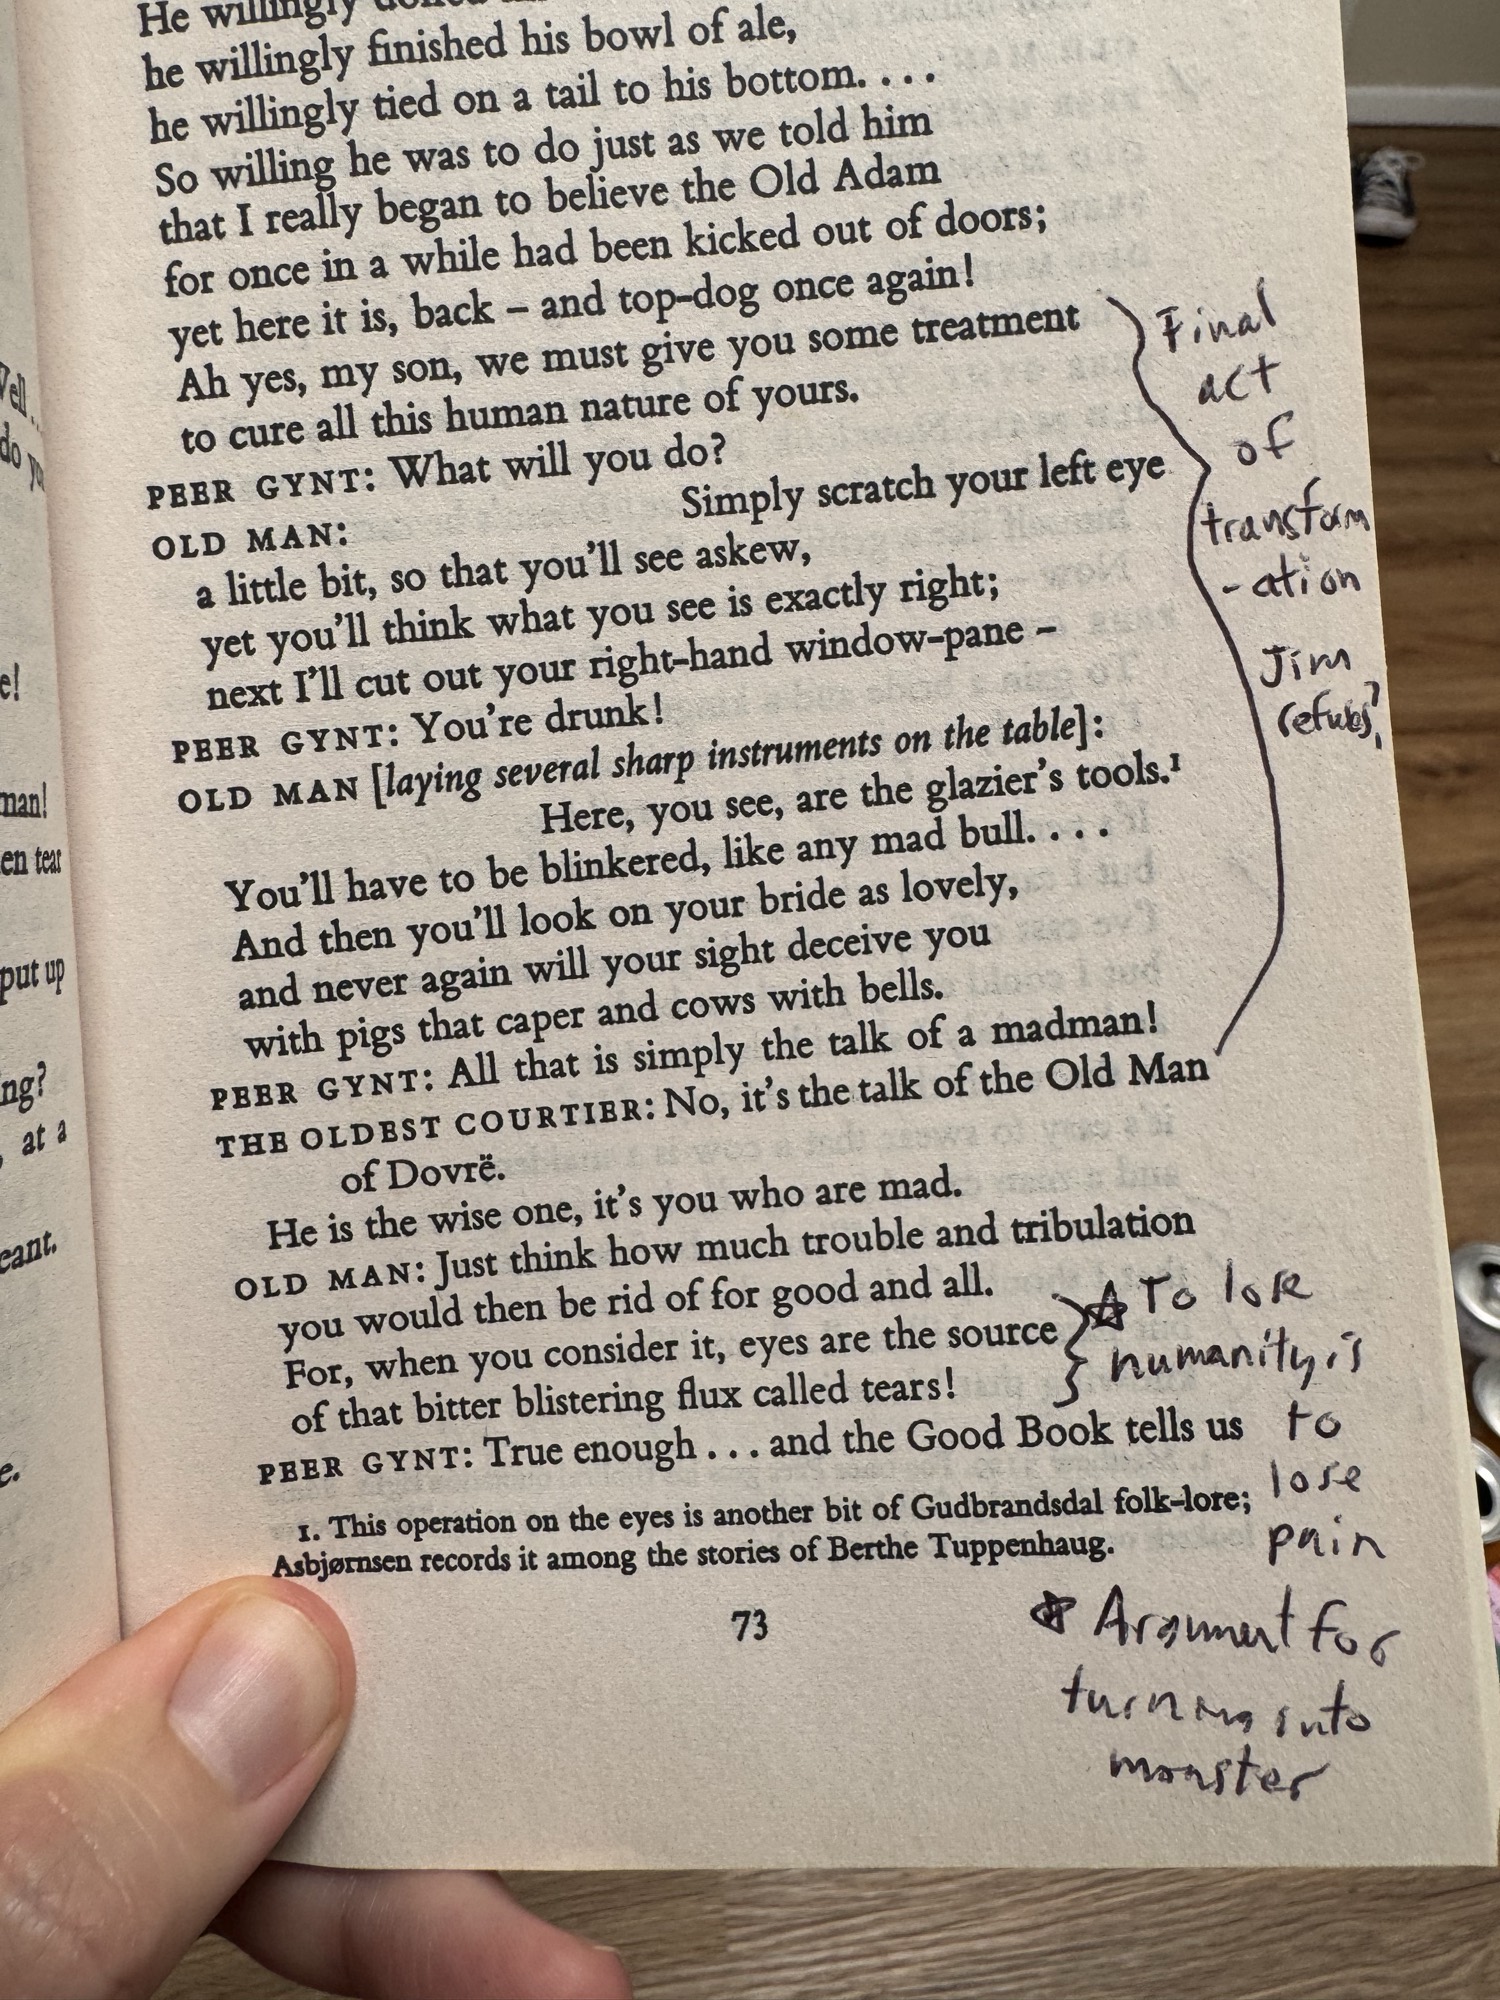 He willingly
he willingly finished his bowl of ale,
he willingly tied on a tail to his bottom. . . .
So willing he was to do just as we told him
that I really began to believe the Old Adam
for once in a while had been kicked out of doors;
yet here it is, back – and top-dog once again!
Ah yes, my son, we must give you some treatment
to cure all this human nature of yours.
PEER GYNT: What will you do?
OLD MAN: Simply scratch your left eye
a little bit, so that you'll see askew,
yet you'll think what you see is exactly right;
next I'll cut out your right-hand window-pane –
PEER GYNT: You're drunk!
OLD MAN [laying several sharp instruments on the table]:
Here, you see, are the glazier's tools.¹
You'll have to be blinkered, like any mad bull. . . .
And then you'll look on your bride as lovely,
and never again will your sight deceive you
with pigs that caper and cows with bells.
PEER GYNT: All that is simply the talk of a madman!
THE OLDEST COURTIER: No, it's the talk of the Old Man
of Dovrë.
He is the wise one, it's you who are mad.
OLD MAN: Just think how much trouble and tribulation
you would then be rid of for good and all.
For, when you consider it, eyes are the source
of that bitter blistering flux called tears!
PEER GYNT: True enough . . . and the Good Book tells us
1. This operation on the eyes is another bit of Gudbrandsdal folk-lore;
Asbjørnsen records it among the stories of Berthe Tuppenhaug.
73
Final
act
of
transform
-ation
Jim
refuses
To lose
humanity is
to
lose
pain
Argument for
turning into
monster
e!
man!
en tear
put up
ing?
, at a
eant.
e.